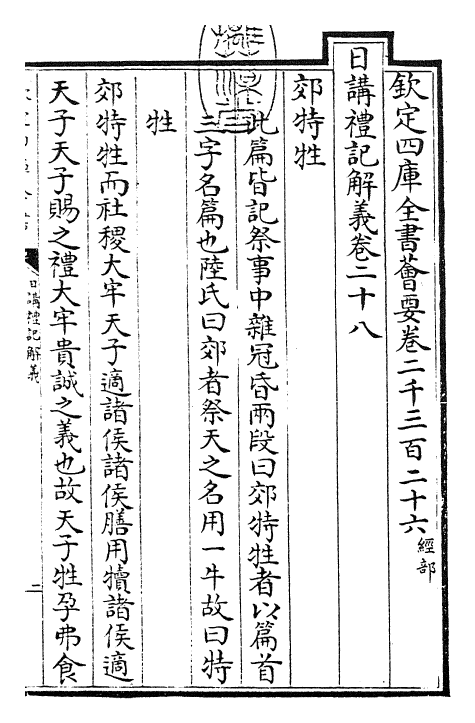 欽定四庫全書薈要卷二千三百二十六 經部
日講禮記解義卷二十八
郊特牲
此篇皆記祭事中雜冠昏兩段曰郊特牲者以篇首
三字名篇也陸氏曰郊者祭天之名用一牛故曰特
牲
郊特牲而社稷大牢天子適諸侯諸侯膳用犢諸侯適
天子天子賜之禮大牢貴誠之義也故天子牲孕弗食
日講禮記解義